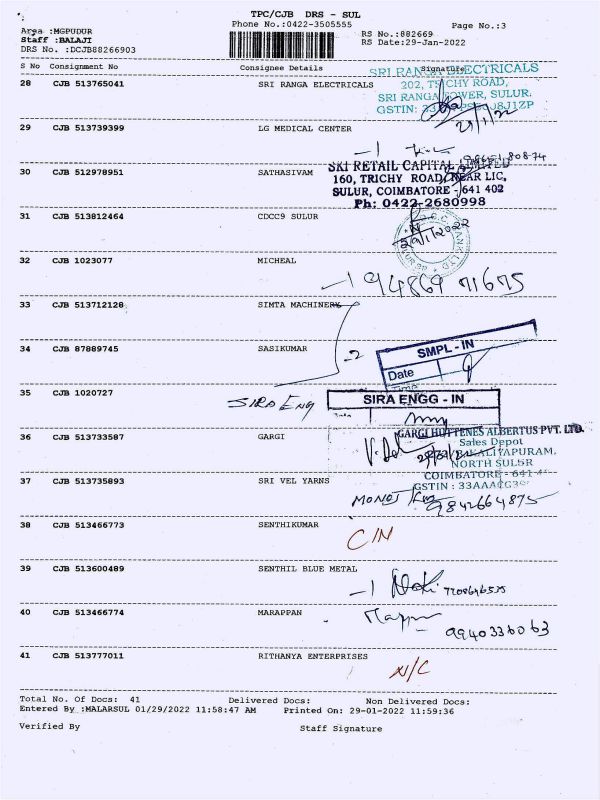 TPC/CJB DRS - SUL
Phone No.:0422-3505555
Page No.:3
Area :MGPUDUR
Staff :BALAJI
DRS No. :DCJB88266903
RS No.:882669
RS Date:29-Jan-2022
S No Consignment No Consignee Details Signature
28 CJB 513765041 SRI RANGA ELECTRICALS
SRI RANGA ELECTRICALS
202, TRICHY ROAD,
SRI RANGA TOWER, SULUR.
GSTIN:
29/1/22
29 CJB 513739399 LG MEDICAL CENTER
30 CJB 512978951 SATHASIVAM
SKI RETAIL CAPITAL LIMITED
160, TRICHY ROAD, NEAR LIC,
SULUR, COIMBATORE - 641 402
Ph: 0422-2680998
31 CJB 513812464 CDCC9 SULUR
29/1/2022
32 CJB 1023077 MICHEAL
-1 94869 71675
33 CJB 513712128 SIMTA MACHINERY
34 CJB 87889745 SASIKUMAR
-2
SMPL - IN
Date
Time
35 CJB 1020727
SIRA ENG
SIRA ENGG - IN
36 CJB 513733587 GARGI
GARGI HUTTENES ALBERTUS PVT. LTD.
Sales Depot
NORTH SULUR
COIMBATORE - 641
GSTIN : 33AAACG
37 CJB 513735893 SRI VEL YARNS
MONOJ
9842664875
38 CJB 513466773 SENTHIKUMAR
C/N
39 CJB 513600489 SENTHIL BLUE METAL
-1
40 CJB 513466774 MARAPPAN
9940336063
41 CJB 513777011 RITHANYA ENTERPRISES
N/C
Total No. Of Docs: 41 Delivered Docs: Non Delivered Docs:
Entered By :MALARSUL 01/29/2022 11:58:47 AM Printed On: 29-01-2022 11:59:36
Verified By Staff Signature